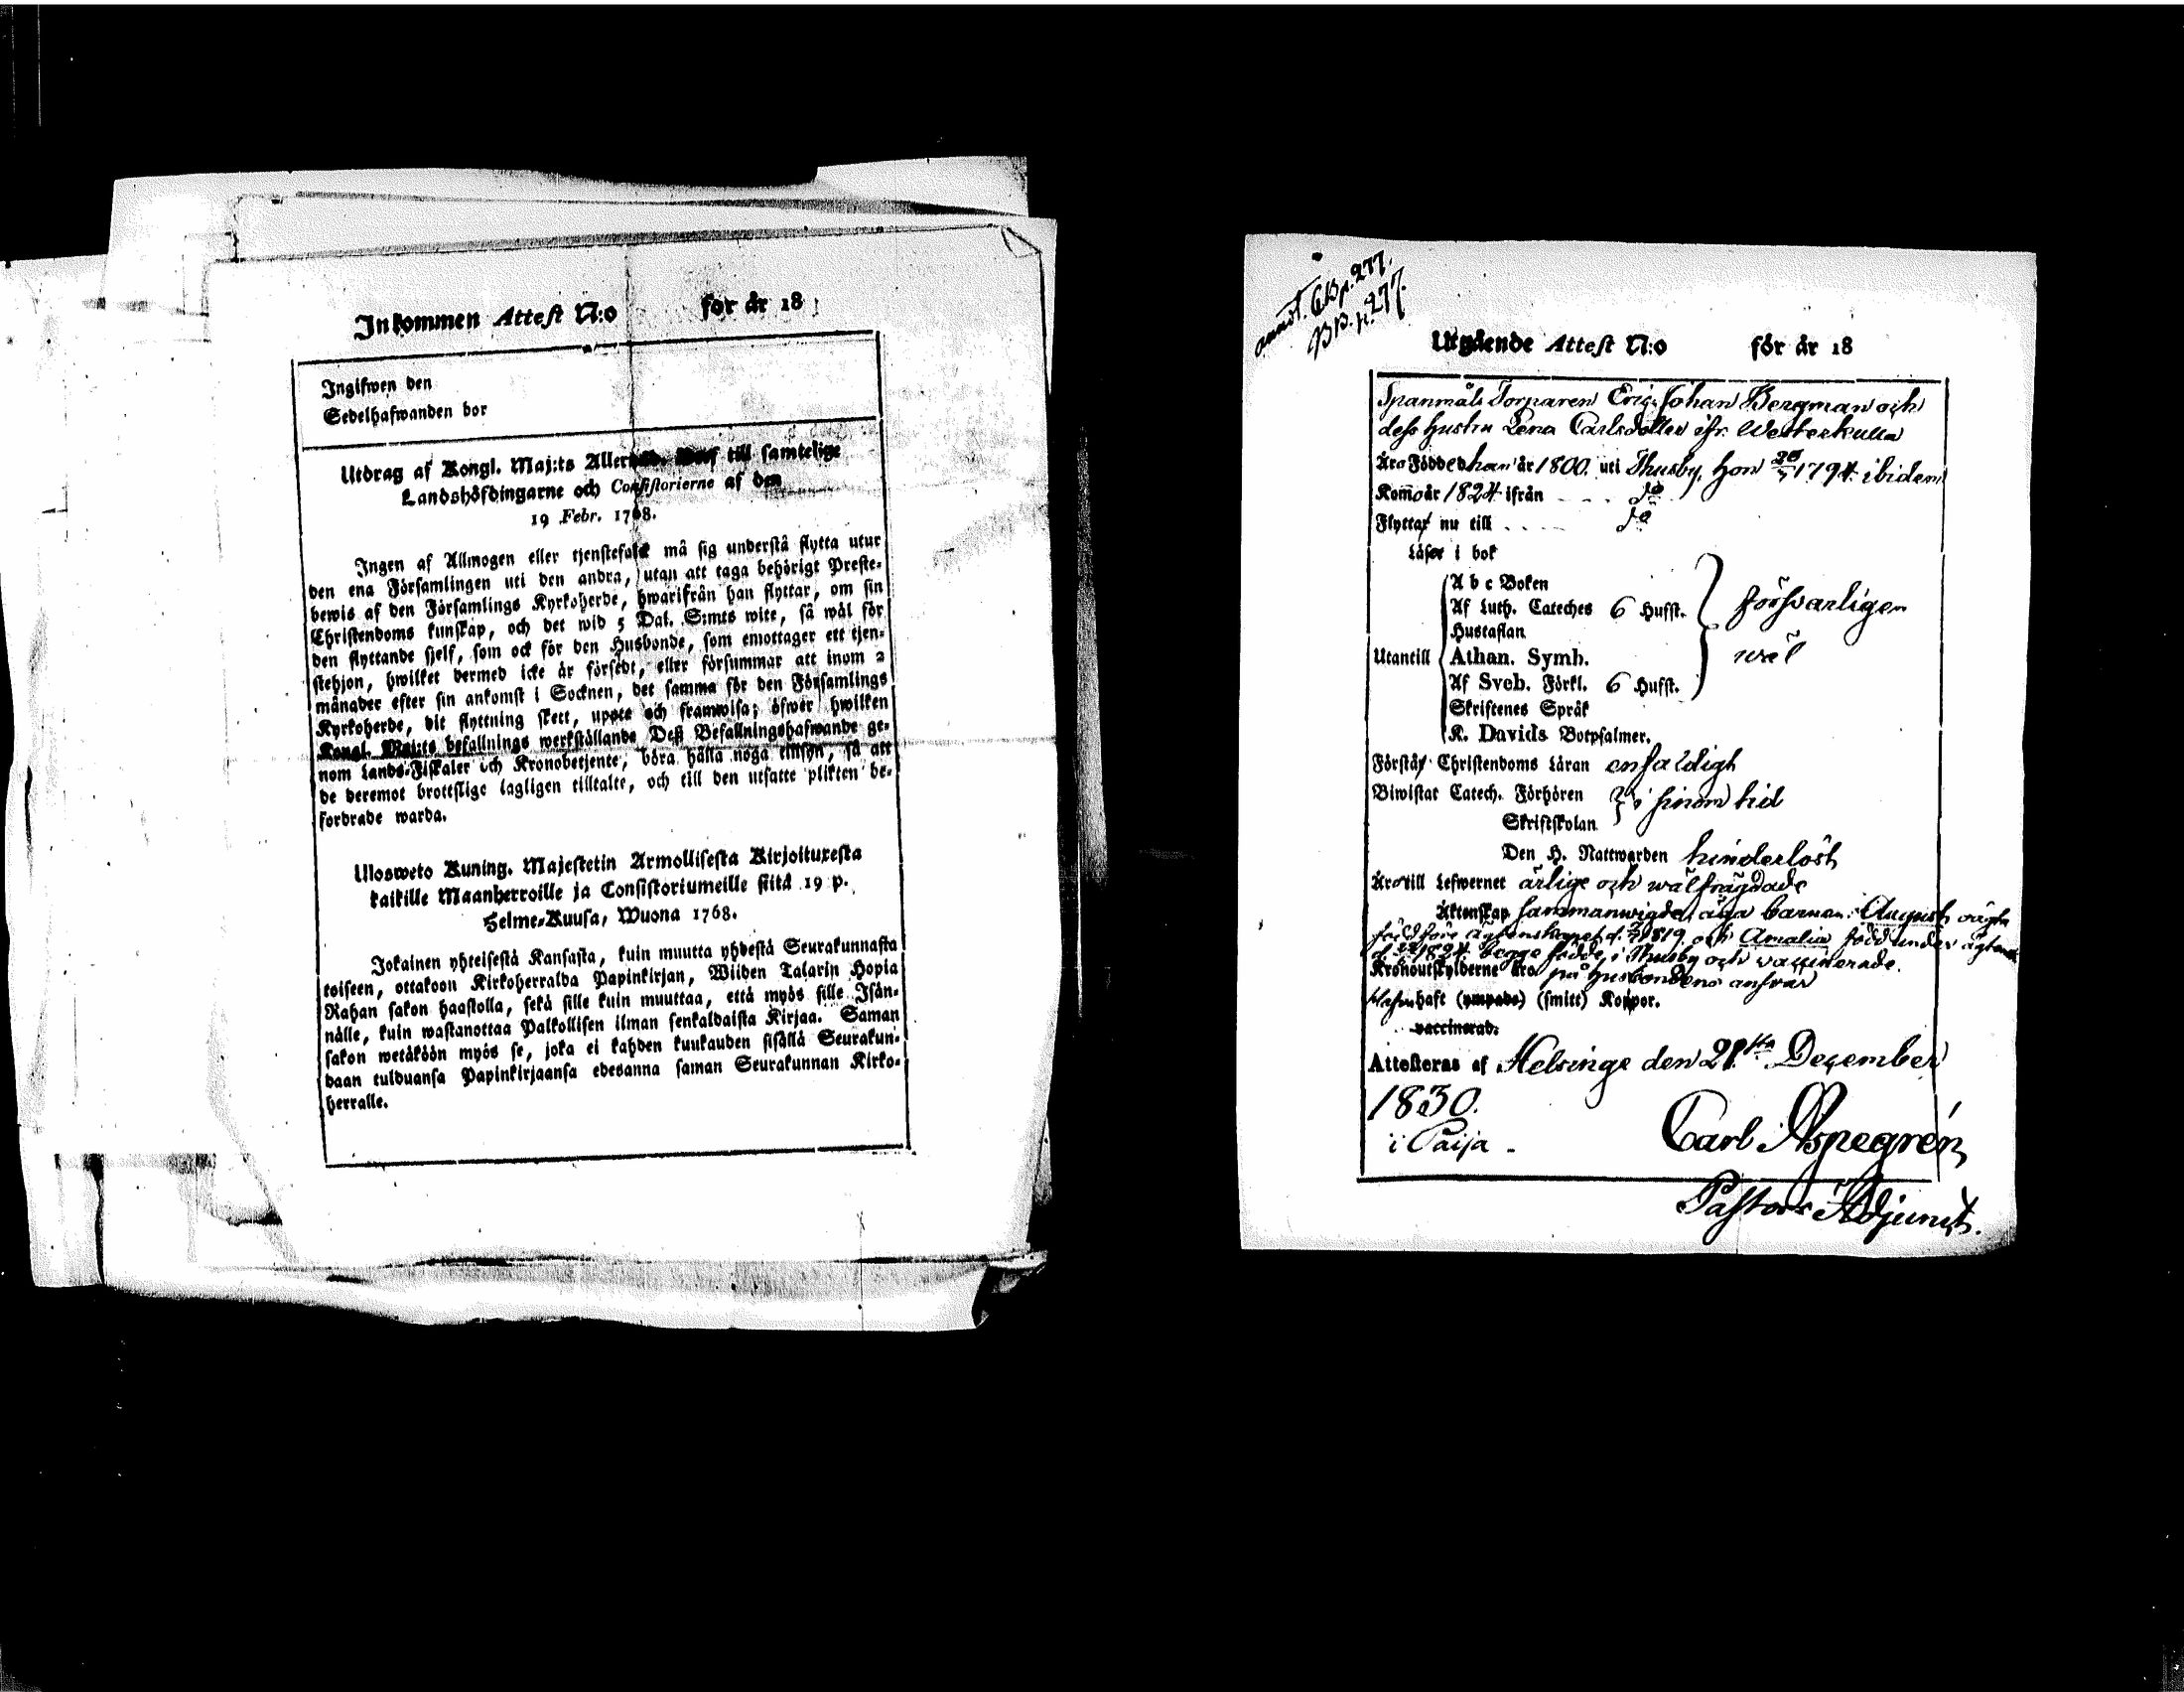 Inkommen Attest N:o för år 18
Ingifwen den
Sedelhafwanden bor
Utdrag af Kongl. Maj:ts till samtelige
Landshöfdingarne och Consistorierne af den
19 Febr. 1768.
Ingen af Allmogen eller tjenstefolk må sig understå flytta utur
den ena Församlingen uti den andra, utan att taga behörigt Preste-
bewis af den Församlings Kyrkoherde, hwarifrån han flyttar, om sin
Christendoms kunskap, och det wid 5 Dal. S:mts wite, så wäl för
den flyttande sjelf, som ock för den Husbonde, som emottager ett tjen-
stehjon, hwilket dermed icke är försedt, eller försummar att inom 2
månader efter sin ankomst i Socknen, det samma för den Församlings
Kyrkoherde, dit flyttning skett, uppte och framwisa; öfwer hwilken
Kongl. Maj:ts befallnings werkställande Deß Befallningshafwande ge-
nom Lands-Fiskaler och Kronobetjente, böra hålla noga tillsyn, så att
de deremot brottslige lagligen tilltalte, och till den utsatte plikten be-
fordrade warda.
Ulosweto Kuning. Majestetin Armollisesta Kirjoituxesta
kaikille Maanherroille ja Consistoriumeille siitä 19 p.
Helme-Kuusa, Wuona 1768.
Jokainen yhteisestä Kansasta, kuin muutta yhdestä Seurakunnasta
toiseen, ottakoon Kirkoherralda Papinkirjan, Wiiden Talarin Hopia
Rahan sakon haastolla, sekä sille kuin muuttaa, että myös sille Isän-
nälle, kuin wastanottaa Palkollisen ilman senkaldaista Kirjaa. Saman
sakon wetäköön myös se, joka ei kahden kuukauden sisällä Seurakun-
daan tulduansa Papinkirjaansa edesanna saman Seurakunnan Kirko-
herralle.
annot. CB p. 277.
BB. p. 277.
Utgående Attest N:o för år 18
Spanmåls Torparen Eric Johan Bergman och
dess hustru Lena Carlsdotter ifr. Westerkulla
Äro Födde han år 1800. uti Thusby, hon 1794 ibidem
Kommo år 1824 ifrån - - - - do
Flytta nu till - - - - do
Läser i bok
A b c Boken
Af Luth. Cateches 6 Hufst. försvarligen
Hustaflan
Utantill Athan. Symb. wäl
Af Sveb. Förkl. 6 Hufst.
Skriftenes Språk
K. Davids Botpsalmer.
Förstå Christendoms Läran enfaldigt
Biwistat Catech. Förhören i sinom tid
Skriftskolan
Den H. Nattwarden hinderlöst
Äro till Lefwernet ärlige och wälfrägdade
Äktenskap sammanwigde, äga barnen: August oägta
född före ägtenskapet d. 1819. och Amalia född under ägtensk.
d. 1824. begge födde i Thusby och vaccinerade.
Kronoutskylderne äro på husbondens ansvar
haft (ympade) (smitt) Koppor.
vaccinerad.
Attesteras af Helsinge den 28 December
1830.
i Paija - Carl Aspegrén
Pastors Adjunct.